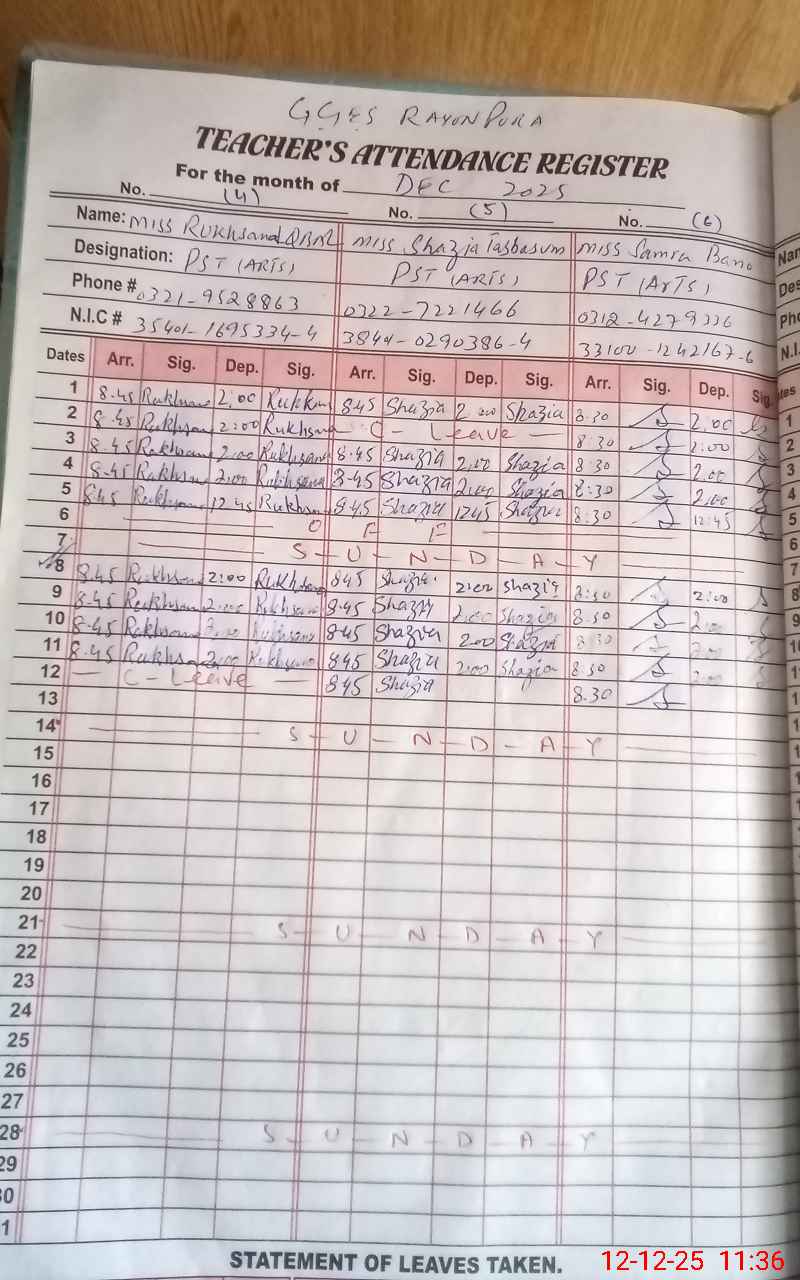 GGES RAYONPURA
TEACHER'S ATTENDANCE REGISTER
For the month of DEC 2025
No. (4) No. (5) No. (6)
Name: Miss Rukhsana Miss Shazia Tasbasum Miss Samra Bano
Designation: PST (ARTS) PST (ARTS) PST (ArTS)
Phone # 0321-9528863 0322-7221466 0312-4279336
N.I.C # 35401-1695334-4 -0290386-4 33100-1242167-6
Dates Arr. Sig. Dep. Sig. Arr. Sig. Dep. Sig. Arr. Sig. Dep. Sig.
1 8.45 Rukhsana 2:00 8.45 Shazia 2.00 Shazia 8.30 2.00 1
2 8.45 Rukhsana 2:00 Rukhsana C - Leave 8:30 2:00 2
3 8.45 Rukhsana 2:00 Rukhsana 8.45 Shazia 2.00 Shazia 8:30 2.00 3
4 8.45 Rukhsana 2:00 Rukhsana 8.45 Shazia 2.00 Shazia 8:30 2.00 4
5 8.45 Rukhsana 12.45 Rukhsana 8.45 Shazia 12.45 Shazia 8:30 12:45 5
6 O F F 6
7 S - U - N - D - A - Y 7
8 8.45 Rukhsana 2:00 Rukhsana 8.45 Shazia 2:00 Shazia 8:30 2:00 8
9 8.45 Rukhsana 2:00 Rukhsana 8.45 Shazia 2.00 Shazia 8.30 9
10 8.45 Rukhsana Rukhsana 8.45 Shazia 2.00 Shazia 8:30
11 8.45 Rukhsana 2:00 Rukhsana 8.45 Shazia 2:00 Shazia 8.30
12 C - Leave 8.45 Shazia 8.30
13
14 S - U - N - D - A - Y
15
16
17
18
19
20
21 S - U - N - D - A - Y
22
23
24
25
26
27
28 S - U - N - D - A - Y
29
30
STATEMENT OF LEAVES TAKEN.
12-12-25 11:36